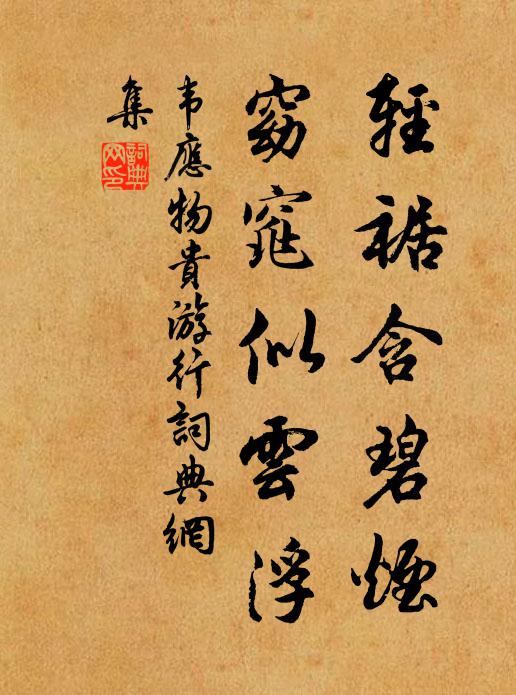 輕裾含碧煙
窈窕似雲浮
韦應物貴游行詞典網
集
詞典网印